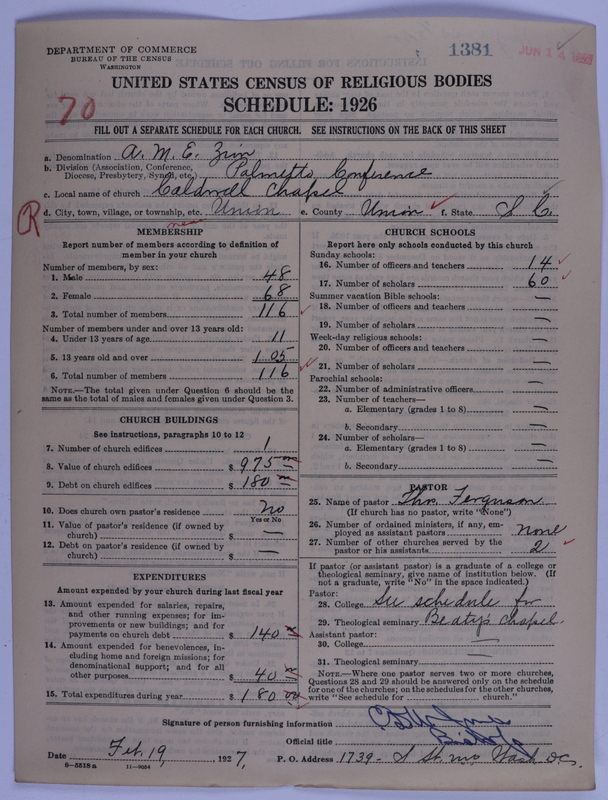 DEPARTMENT OF COMMERCE
BUREAU OF THE CENSUS
WASHINGTON
1381
JUN 1
70
UNITED STATES CENSUS OF RELIGIOUS BODIES
SCHEDULE: 1926
FILL OUT A SEPARATE SCHEDULE FOR EACH CHURCH. SEE INSTRUCTIONS ON THE BACK OF THIS SHEET
a. Denomination A. M. E. Zion
b. Division (Association, Conference, Diocese, Presbytery, Synod, etc.) Palmetto Conference
c. Local name of church Caldwell Chapel
d. City, town, village, or township, etc. Union e. County Union f. State S C.
R
near
MEMBERSHIP
Report number of members according to definition of member in your church
Number of members, by sex:
1. Male 48
2. Female 68
3. Total number of members 116
Number of members under and over 13 years old:
4. Under 13 years of age 11
5. 13 years old and over 105
6. Total number of members 116
NOTE.—The total given under Question 6 should be the same as the total of males and females given under Question 3.
CHURCH BUILDINGS
See instructions, paragraphs 10 to 12
7. Number of church edifices 1
8. Value of church edifices $ 975
9. Debt on church edifices $ 180
10. Does church own pastor's residence no
Yes or No
11. Value of pastor's residence (if owned by church) $ —
12. Debt on pastor's residence (if owned by church) $ —
EXPENDITURES
Amount expended by your church during last fiscal year
13. Amount expended for salaries, repairs, and other running expenses; for improvements or new buildings; and for payments on church debt $ 140
14. Amount expended for benevolences, including home and foreign missions; for denominational support; and for all other purposes $ 40
15. Total expenditures during year $ 180 00
CHURCH SCHOOLS
Report here only schools conducted by this church
Sunday schools:
16. Number of officers and teachers 14
17. Number of scholars 60
Summer vacation Bible schools:
18. Number of officers and teachers —
19. Number of scholars —
Week-day religious schools:
20. Number of officers and teachers —
21. Number of scholars —
Parochial schools:
22. Number of administrative officers —
23. Number of teachers—
a. Elementary (grades 1 to 8) —
b. Secondary —
24. Number of scholars—
a. Elementary (grades 1 to 8) —
b. Secondary —
PASTOR
25. Name of pastor Thos. Ferguson
(If church has no pastor, write "None")
26. Number of ordained ministers, if any, employed as assistant pastors none
27. Number of other churches served by the pastor or his assistants 2
If pastor (or assistant pastor) is a graduate of a college or theological seminary, give name of institution below. (If not a graduate, write "No" in the space indicated.)
Pastor:
28. College See schedule for
29. Theological seminary Beaty's Chapel.
Assistant pastor:
30. College —
31. Theological seminary —
NOTE.—Where one pastor serves two or more churches, Questions 28 and 29 should be answered only on the schedule for one of the churches; on the schedules for the other churches, write "See schedule for church."
Signature of person furnishing information
Official title Bishop
Date Feb. 19, 1927.
P. O. Address 1739- S St. NW Wash DC.
8-5518 a 11-9034